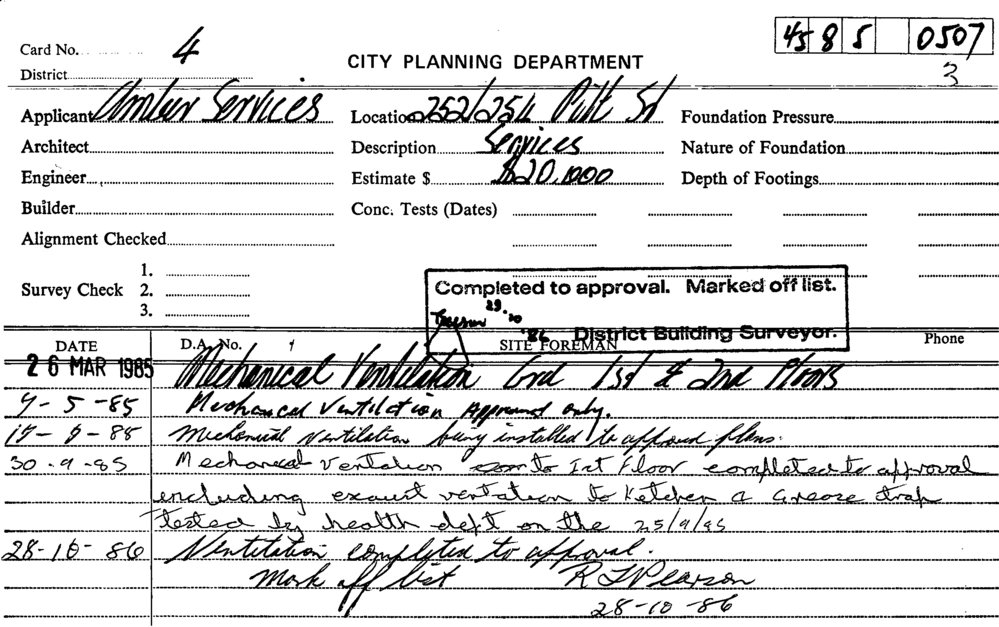 45 8 5 0507
3
Card No. 4
CITY PLANNING DEPARTMENT
District
Applicant Amber Services Location 252/254 Pitt St Foundation Pressure
Architect Description Services Nature of Foundation
Engineer Estimate $ $20,000 Depth of Footings
Builder Conc. Tests (Dates)
Alignment Checked
1.
Survey Check 2.
3.
Completed to approval. Marked off list.
29.10
'86 District Building Surveyor.
DATE D.A. No. SITE FOREMAN Phone
26 MAR 1985 Mechanical Ventilation Grd 1st & 2nd Floors
7-5-85 Mechanical Ventilation Approved only.
Mechanical Ventilation being installed to approved plans.
30.9.85 Mechanical Ventation to 1st Floor completed to approval
encluding exaust ventation to Ketchen & Grease trap
tested by health dept on the 25/9/85
28-10-86 Ventilation completed to approval.
Mark off list R Pearson
28-10-86